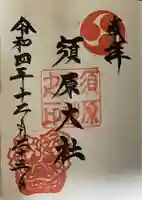 奉拝
須原大社
須原
令和四年十二月二十二日